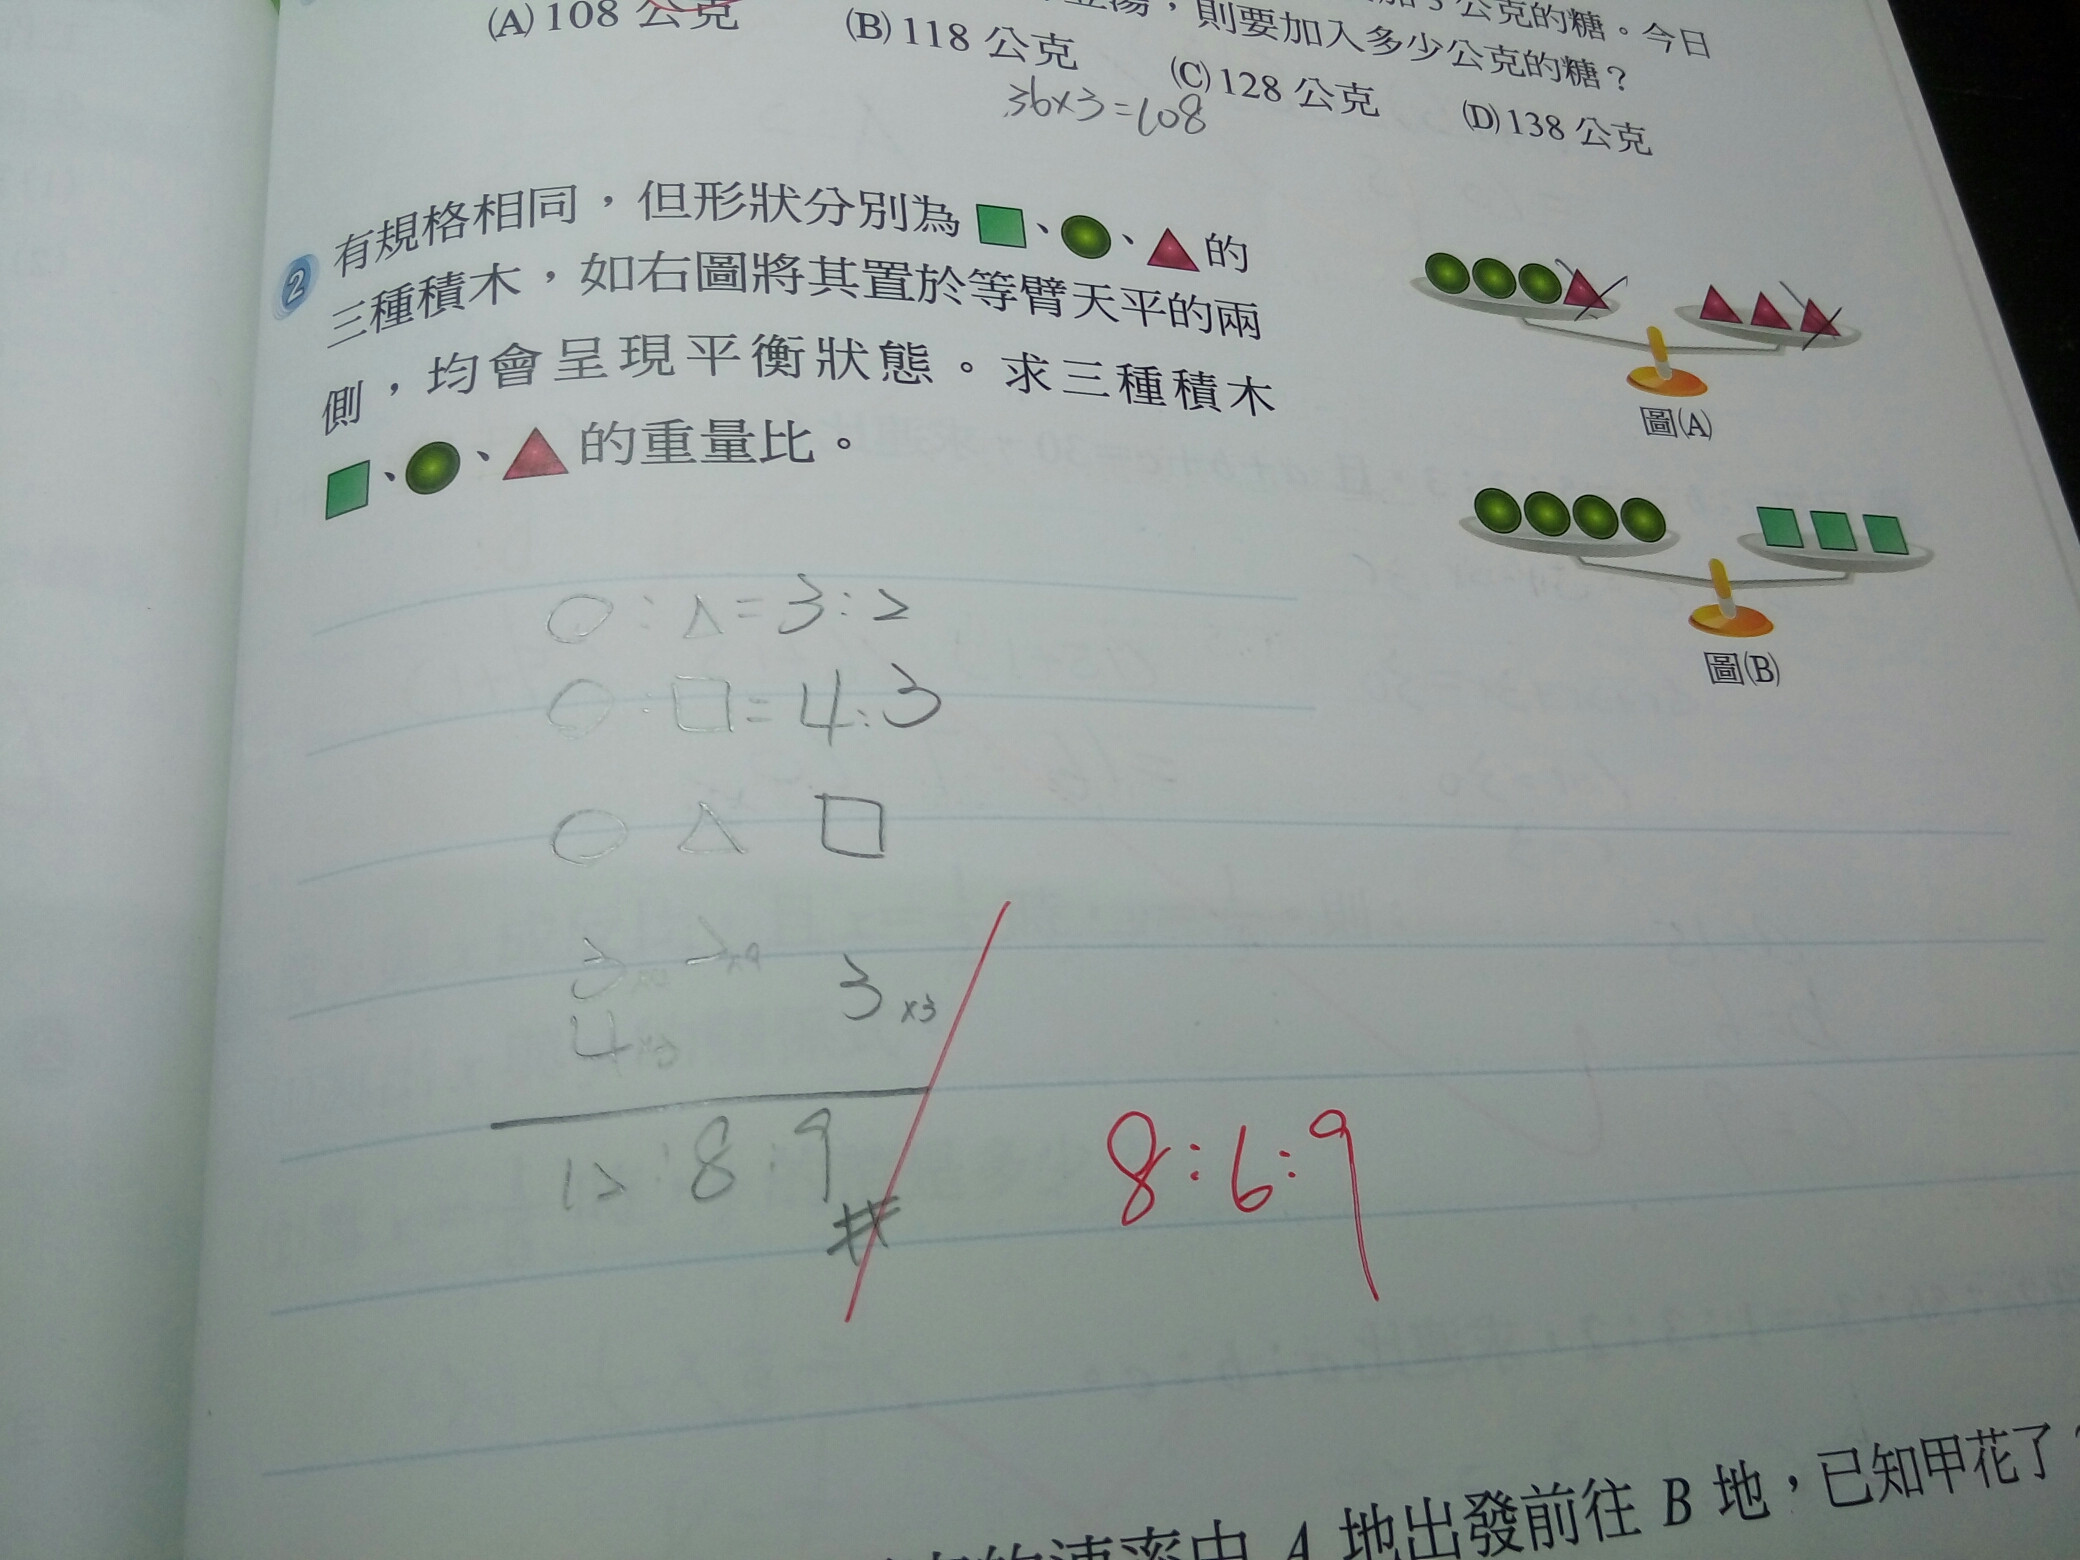 加3公克的糖。今日
湯,則要加入多少公克的糖?
(A)108 公克 (B)118 公克 (C)128 公克 (D)138 公克
36×3=108
2 有規格相同,但形狀分別為■、●、▲的
三種積木,如右圖將其置於等臂天平的兩
側,均會呈現平衡狀態。求三種積木
■、●、▲的重量比。
圖(A)
圖(B)
○:△=3:2
○:□=4:3
○ △ □
3 2 3×3
4×3
12:8:9 #
8:6:9
地出發前往 B 地,已知甲花了
的速率由 A